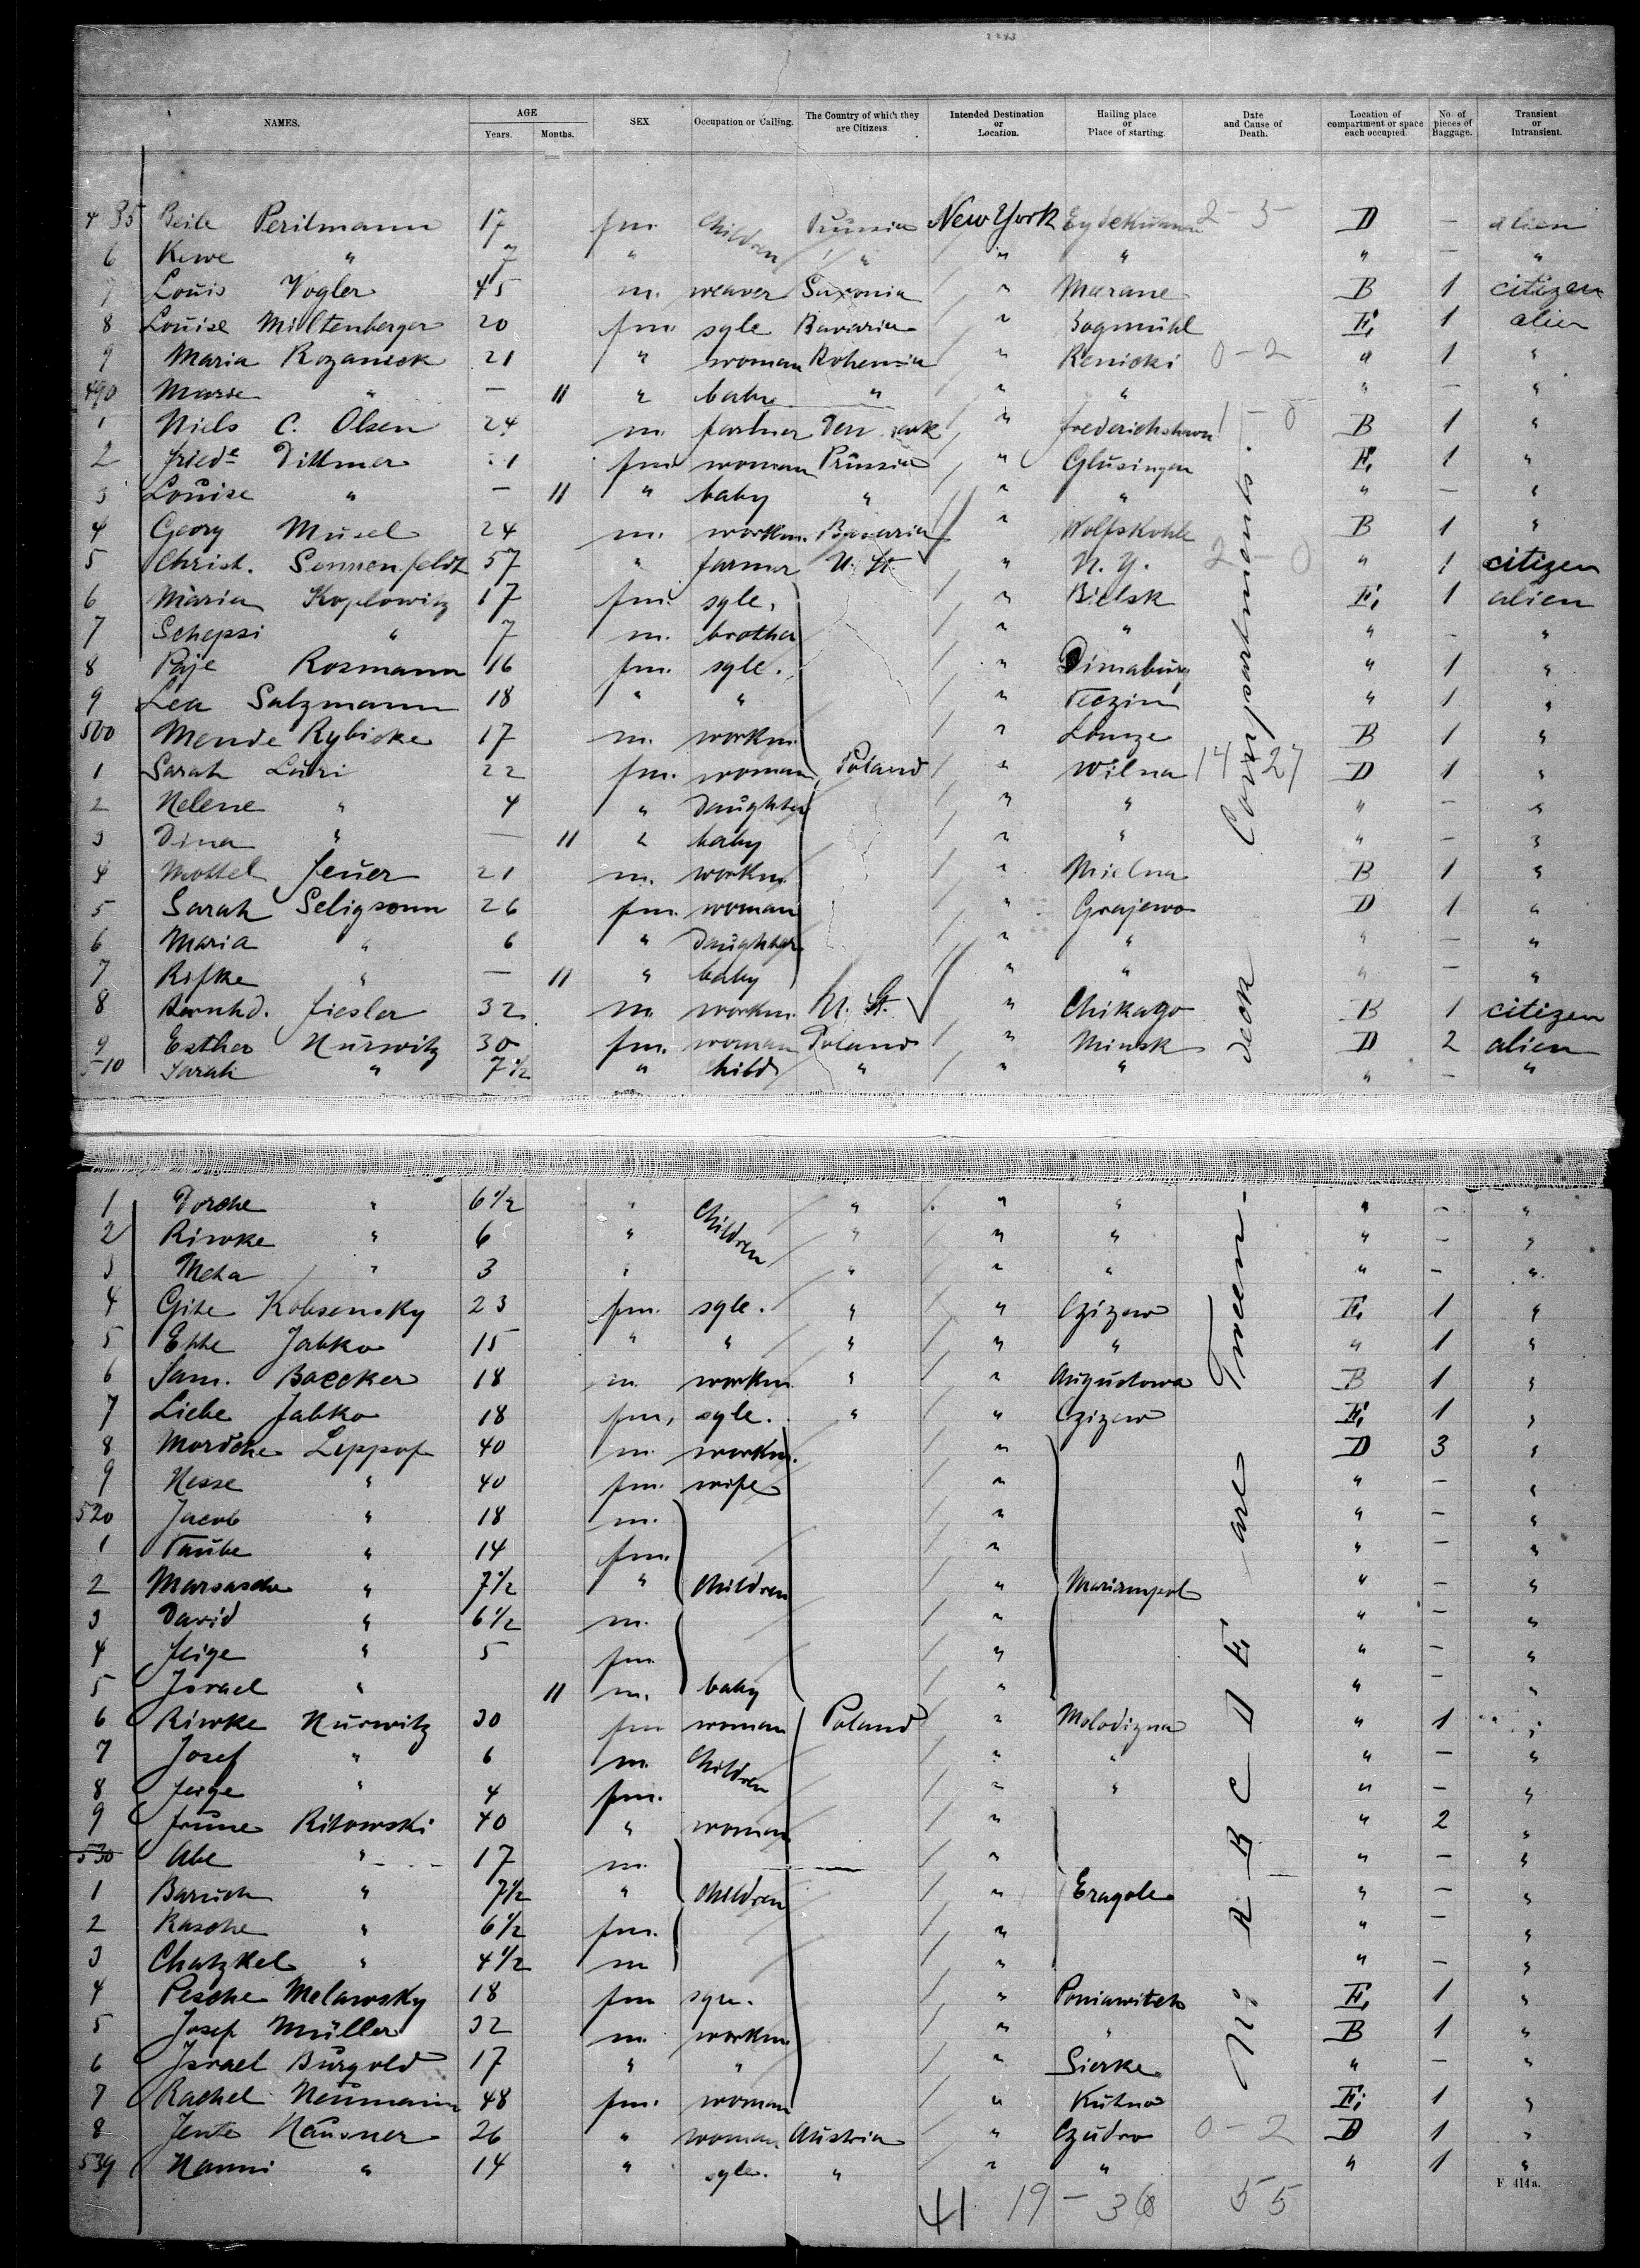 NAMES. AGE Years. Months. SEX Occupation or Calling. The Country of which they are Citizens. Intended Destination or Location. Hailing place or Place of starting. Date and Cause of Death. Location of compartment or space each occupied. No. of pieces of Baggage. Transient or Intransient.
4 85 Beile Perilmann 17 fm. Children Prussia New York Eydtkuhnen 2-3 D - alien
6 Kewe " 7 " " " " " - "
7 Louis Vogler 45 m. weaver Saxonia " Marane B 1 citizen
8 Louise Miltenberger 20 fm. sgle Bavaria " E, 1 alien
9 Maria Rozanick 21 " woman Bohemia " Renicki 0-2 " 1 "
490 Marie " - 11 " " " " " - "
1 Niels C. Olsen 24 m. " 1-0 B 1 "
2 Friede Dittmer fm. woman Prussia " Glüsingen E, 1 "
3 Louise " - 11 " baby " " " " - "
4 Georg Musel 24 m. workm. Bavaria " B 1 "
5 Christ. Sonnenfeldt 57 " farmer U. St " N. Y. 2-0 " 1 citizen
6 Maria Koplowitz 17 fm. sgle. " Bielsk E, 1 alien
7 Schepsi " 7 m. brother " " " - "
8 Paje Rosmann 16 fm. sgle. " Dinaburg " 1 "
9 Lea Salzmann 18 " " " " 1 "
500 Mende Rybicke 17 m. workm. " Lomze B 1 "
1 Sarah Luri 22 fm. woman Poland " Wilna 14 27 D 1 "
2 Helene " 4 " Daughter " " " - "
3 Dina " - 11 " baby " " " - "
4 Mottel Feuer 21 m. workm. " Mielna B 1 "
5 Sarah Seligsonn 26 fm. woman " Grajewo D 1 "
6 Maria " 6 " Daughter " " " - "
7 Rifke " - 11 " baby " " " - "
8 Bernhd. Fiesler 32 m workm. U. St. " Chikago B 1 citizen
9 Esther Hurwitz 30 fm. woman Poland " Minsk D 2 alien
510 Sarah " 7 1/2 " Child " " " " - "
1 Dorche " 6 1/2 " Children " " " " - "
2 Riwke " 6 " " " " " - "
3 Meta " 3 " " " " " - "
4 Gite Kobsensky 23 fm. sgle. " " Czizew E, 1 "
5 Ette Jabko 15 " " " " " " 1 "
6 Sam. Baecker 18 m. workm. " " Augustowa B 1 "
7 Liebe Jabko 18 fm, sgle. " " Czizew E, 1 "
8 Mordche Leppof 40 m. workm. " D 3 "
9 Hesse " 40 fm. wife " " - "
520 Jacob " 18 m. " " - "
1 Taube " 14 fm. " " - "
2 Marsasche " 7 1/2 " Children " Mariampol " - "
3 David " 6 1/2 m. " " - "
4 Feige " 5 fm. " " - "
5 Israel " 11 m. baby " " - "
6 Riwke Hurwitz 30 fm woman Poland " Molodizna " 1 "
7 Josef " 6 m. Children " " " - "
8 Feige " 4 fm. " " " - "
9 Frume Ritowski 40 " woman " " 2 "
530 Abe " 17 m. " " - "
1 Baruch " 7 1/2 " Children " Eragole " - "
2 Rasche " 6 1/2 fm. " " - "
3 Chatzkel " 4 1/2 m " " - "
4 Pesche Melawsky 18 fm " Poniawitch E, 1 "
5 Josef Müller 32 m. workm. " " B 1 "
6 Israel Burgold 17 " " " Sierke " - "
7 Rachel Neumann 48 fm. woman " Kutno E, 1 "
8 Jente Hausner 26 " woman Austria " Czudro 0-2 D 1 "
539 Nanni " 14 " sgle. " " " " 1 "
F. 414a.
41 19 - 36 55
No: A B C D E are Tween-deck Compartments.